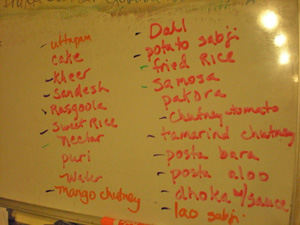 uttapam
cake
kheer
sandesh
Rasgoola
Sweet Rice
nectar
puri
Water
mango chutney
Dahl
potato sabji
fried Rice
Samosa
pakora
Chutney-tomato
tamarind chutney
posta bara
posta aloo
dhoka w/sauce
lao sabji